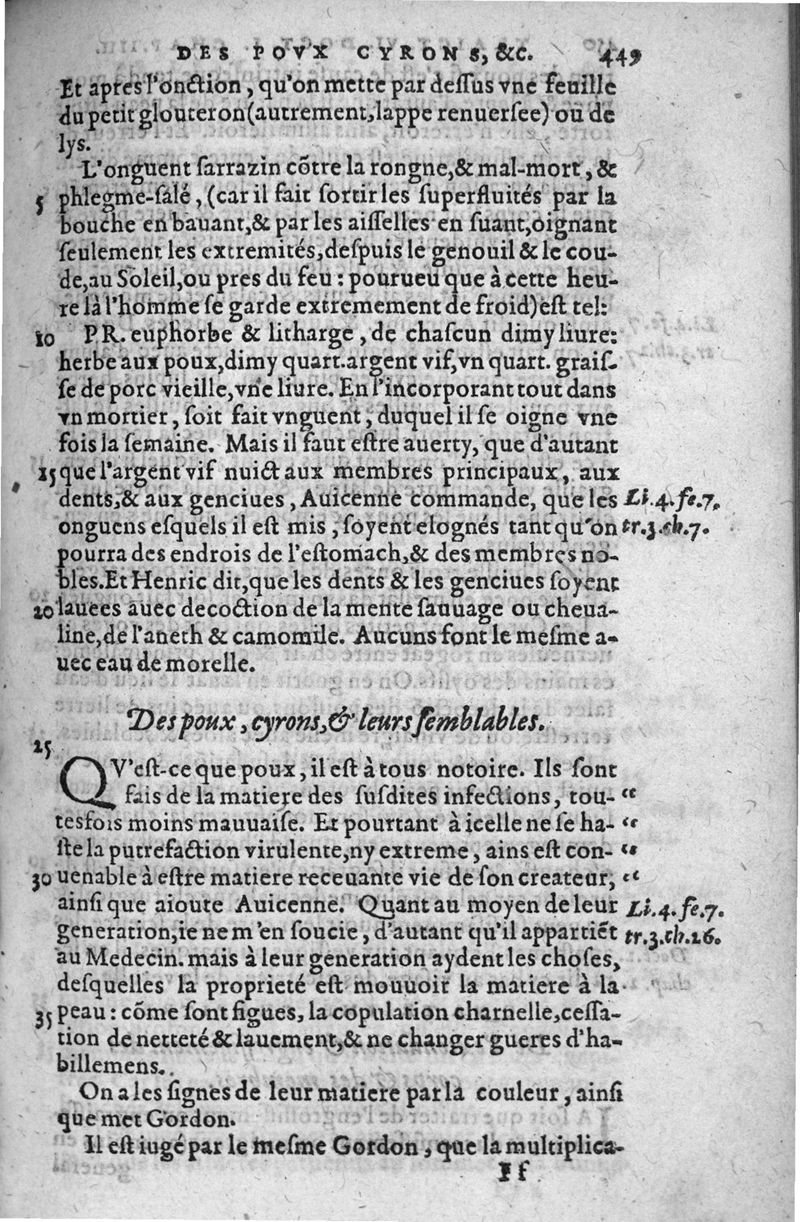 DES POVX CYRONS, &C. 449
Et apres l'onction, qu'on mette par dessus vne feuille
du petit glouteron (autrement, lappe renuersee) ou de
lys.
L'onguent sarrazin cõtre la rongne, & mal-mort, &
5 phlegme-salé, (car il fait sortir les superfluités par la
bouche en bauant, & par les aisselles en suant, oignant
seulement les extremités, despuis le genouil & le cou-
de, au Soleil, ou pres du feu : pourueu que à cette heu-
re là l'homme se garde extremement de froid) est tel:
10 PR. euphorbe & litharge, de chascun dimy liure:
herbe aux poux, dimy quart. argent vif, vn quart. grais-
se de porc vieille, vne liure. En l'incorporant tout dans
vn mortier, soit fait vnguent, duquel il se oigne vne
fois la semaine. Mais il faut estre auerty, que d'autant
15 que l'argent vif nuict aux membres principaux, aux
dents, & aux genciues, Auicenne commande, que les Li.4.fe.7.
onguens esquels il est mis, soyent elognés tant qu'on tr.3.ch.7.
pourra des endrois de l'estomach, & des membres no-
bles. Et Henric dit, que les dents & les genciues soyent
20 lauees auec decoction de la mente sauuage ou cheua-
line, de l'aneth & camomile. Aucuns font le mesme a-
uec eau de morelle.
Des poux, cyrons, & leurs semblables.
25
QV'est-ce que poux, il est à tous notoire. Ils sont
fais de la matiere des susdites infections, tou- “
tesfois moins mauuaise. Et pourtant à icelle ne se ha- “
ste la putrefaction virulente, ny extreme, ains est con- “
30 uenable à estre matiere receuante vie de son createur, “
ainsi que aioute Auicenne. Quant au moyen de leur Li.4.fe.7.
generation, ie ne m'en soucie, d'autant qu'il appartiẽt tr.3.ch.26.
au Medecin. mais à leur generation aydent les choses,
desquelles la proprieté est mouuoir la matiere à la
35 peau : cõme sont figues, la copulation charnelle, cessa-
tion de netteté & lauement, & ne changer gueres d'ha-
billemens.
On a les signes de leur matiere par la couleur, ainsi
que met Gordon.
Il est iugé par le mesme Gordon, que la multiplica-
Ff